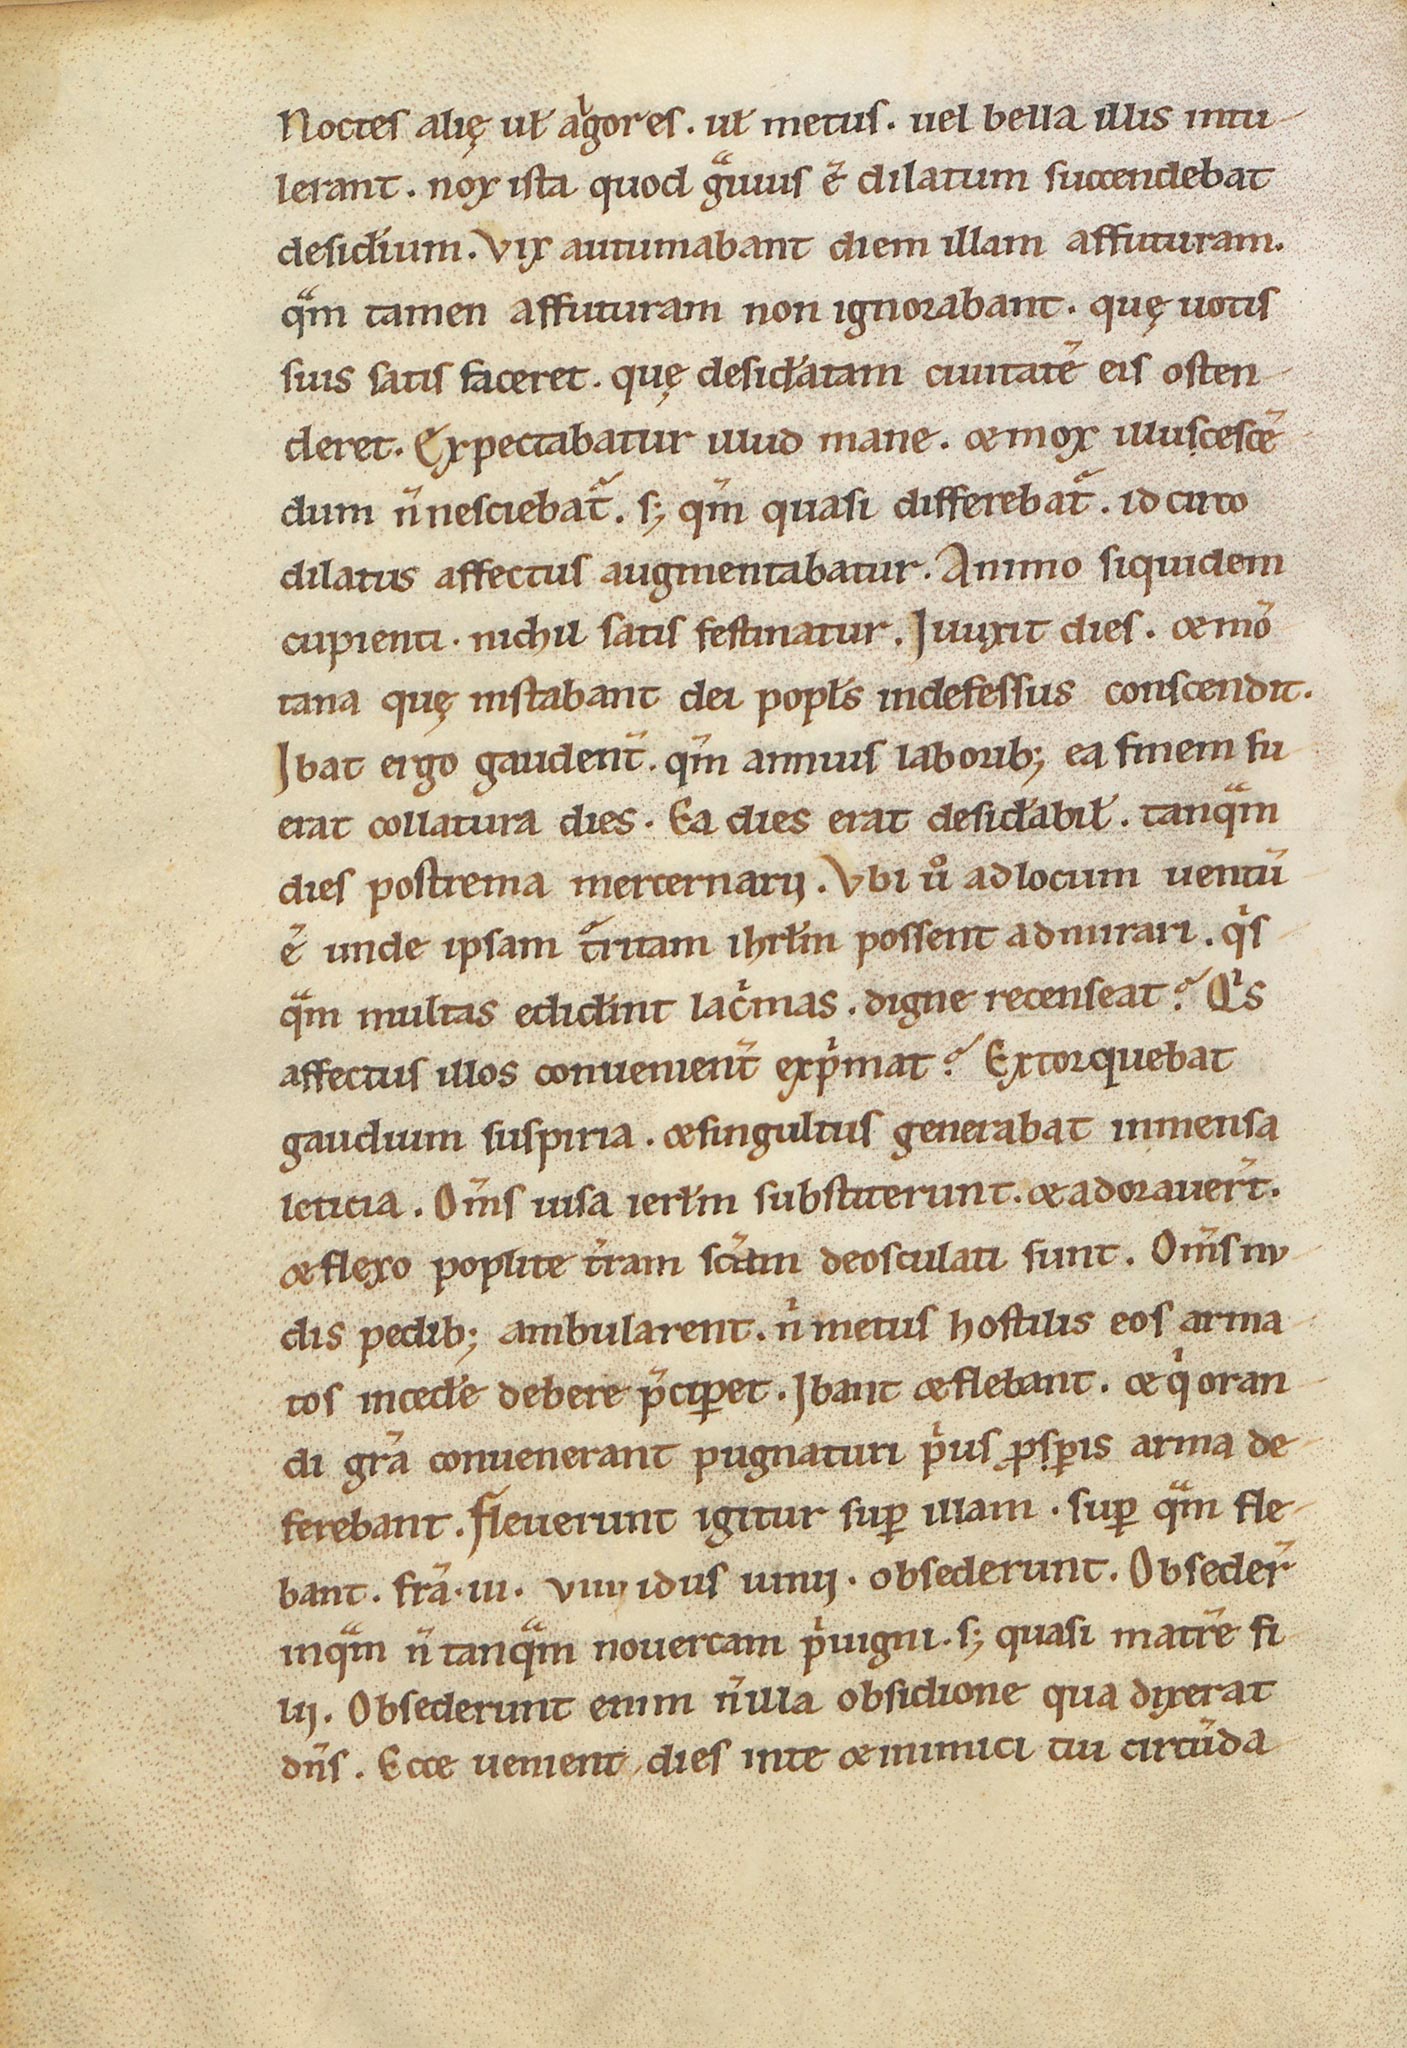 Noctes alię ul̄ aͥgores. ul̄ metus. uel bella illis intu-
lerant. nox ista quod gͣuius ē dilatum succendebat
desid̄ium. Vix autumabant diem illam affuturam.
qͣm tamen affuturam non ignorabant. quę uotis
suis satis faceret. quę desid̄atam ciuitatē eis osten-
deret. Expectabatur illud mane. & mox illuscescē
dum n̄ nesciebat᷑. s; qm̄ quasi differebat᷑. idcirco
dilatus affectus augmentabatur. Animo siquidem
cupienti. nichil satis festinatur. Illuxit dies. & mō
tana quę instabant dei popl̄s indefessus conscendit.
Ibat ergo gaudent̄. qm̄ annuis laborib; ea finem fu-
erat collatura dies. Ea dies erat desid̄abil̄. tanqͣm
dies postrema mercernarij. Vbi ů ad locum uentū
ē unde ipsam t᷑ritam ihrl̄m possent admirari. qͥs
qͣm multas edid̄int lac̄mas. digne recenseat? Qͥs
affectus illos conuenient̄ expͥmat? Extorquebat
gaudium suspiria. & singultus generabat inmensa
leticia. Om̄s uisa ierl̄m substiterunt. & adorauer̄t.
& flexo poplite t̄ram sc̄am deosculati sunt. Om̄s nu-
dis pedib; ambularent. nͥ metus hostilis eos arma-
tos inced̄e debere p̄ciꝑet. Ibant & flebant. & qͥ oran-
di gr̄a conuenerant pugnaturi pͥus ꝓsꝑis arma de-
ferebant. Fleuerunt igitur suꝑ illam. suꝑ qͣm fle-
bant. fr̄a. iii. viiij idus iunij. obsederunt. Obseder̄
inqͣm n̄ tanqͣm nouercam pͥuigni. s; quasi matr̄e fi
lij. Obsederunt enim n̄ illa obsidione qua dixerat
dn̄s. Ecce uenient dies in te & inimici tui circūda-